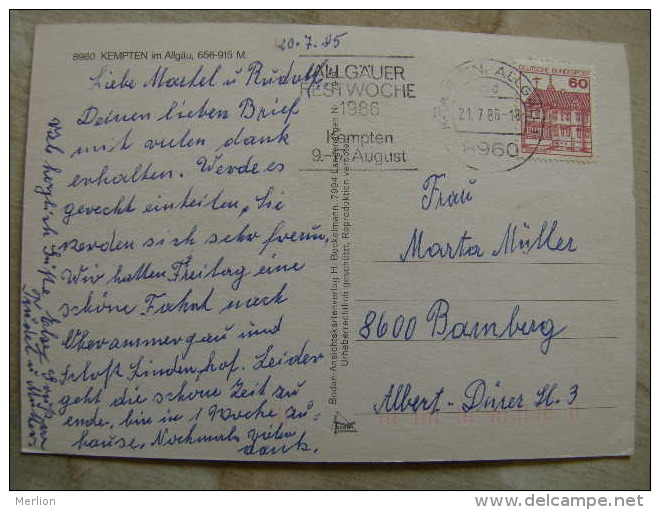 8960 KEMPTEN im Allgäu, 656-915 M.
20.7.85
Liebe Martel u Rudolf
Deinen lieben Brief
mit vielen dank
erhalten. Werde es
gerecht einteilen, Sie
werden sich sehr freun,
Wir hatten Freitag eine
schöne Fahrt nach
Oberammergau und
Schloß Linden,hof. Leider
geht die schöne Zeit zu
ende, bin in 1 Woche zu-
hause. Nochmals vielen
dank.
Viele herzlich Grüße
ALLGÄUER
FESTWOCHE
1986
Kempten
9. August
21.7.86-18
8960
DEUTSCHE BUNDESPOST
60
Bodan-Ansichtskartenverlag H. Bockelmann, 7994 Langenargen
Urheberrechtlich geschützt, Reproduktion verboten
Frau
Marta Müller
8600 Bamberg
Albert-Dürer St. 3
Merlion
delcampe.net